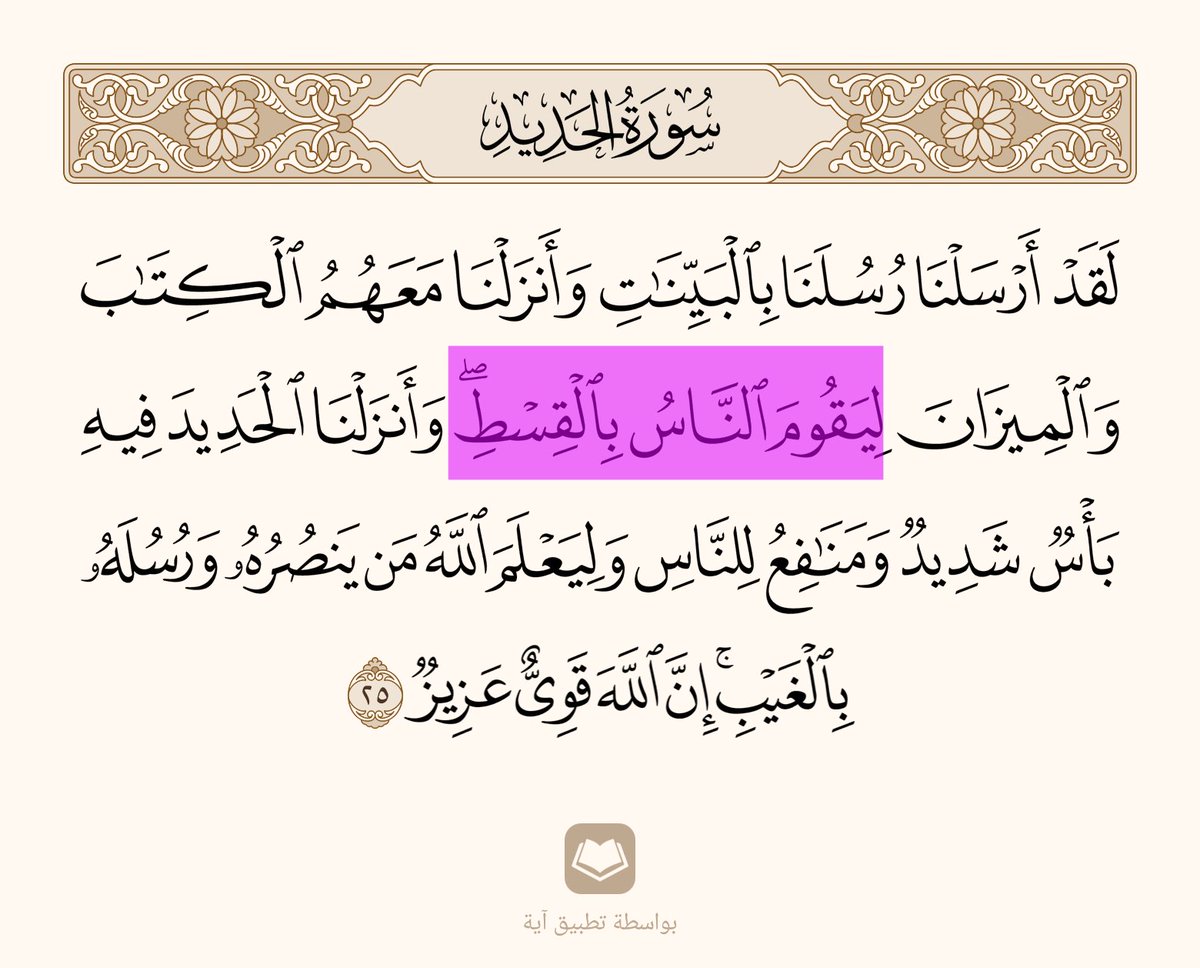 سُورَةُ الحَدِيدِ
لَقَدۡ أَرۡسَلۡنَا رُسُلَنَا بِٱلۡبَيِّنَٰتِ وَأَنزَلۡنَا مَعَهُمُ ٱلۡكِتَٰبَ
وَٱلۡمِيزَانَ لِيَقُومَ ٱلنَّاسُ بِٱلۡقِسۡطِۖ وَأَنزَلۡنَا ٱلۡحَدِيدَ فِيهِ
بَأۡسٞ شَدِيدٞ وَمَنَٰفِعُ لِلنَّاسِ وَلِيَعۡلَمَ ٱللَّهُ مَن يَنصُرُهُۥ وَرُسُلَهُۥ
بِٱلۡغَيۡبِۚ إِنَّ ٱللَّهَ قَوِيٌّ عَزِيزٞ ٢٥
بواسطة تطبيق آية